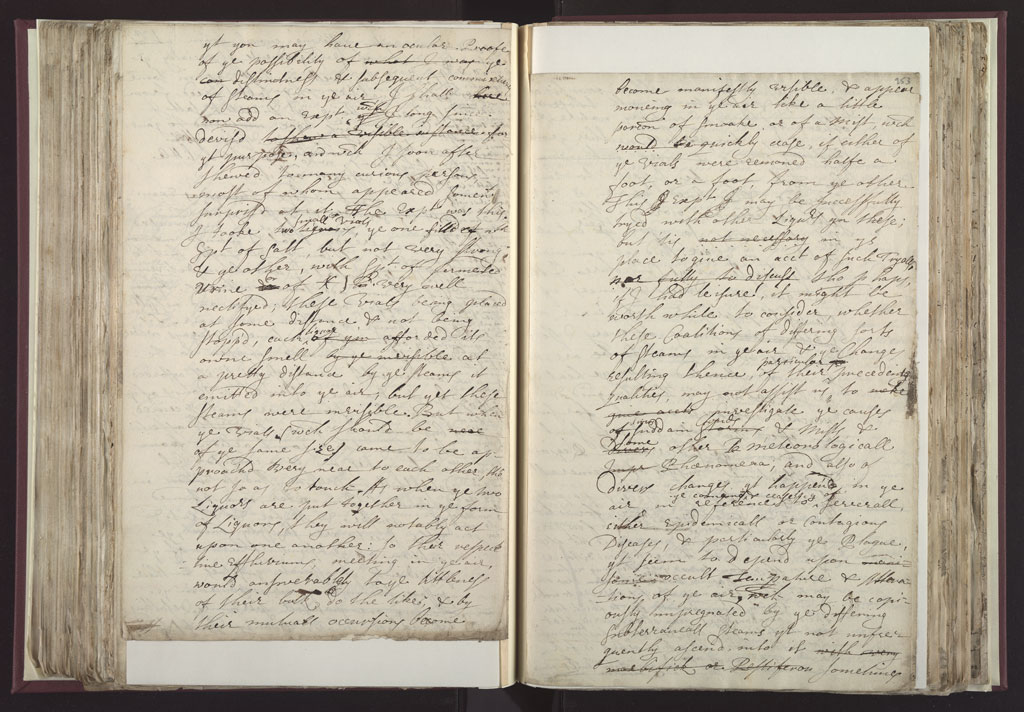 yt you may have an ocular Proofe
of ye possibility of what I was ye
distinctness & subsequent commixture
of steams in ye air I shall here
now add an Expt wch I long since
devis'd to have a visible
yt purpose, and wch I soon after
shewed to many curious persons
most of whom appeared somewt
surpris'd at it. The Expt was this
I tooke two small Vials, ye one fill'd wth
Spt of salt, but not very strong
& ye other, with Spt of fermented
Urine or of very well
rectifyed; these Vials being placed
at some distance & not being
stopp'd, each liquor afforded its
owne smell at
a pretty distance by ye steams it
emitted into ye air; but yet these
steams were invisible. But when
ye Vials (wch should be neer
of ye same size) came to be ap-
proach'd very near to each other, tho
not so as to touch. As when ye two
Liquors are put together in ye form
of Liquors, they will notably act
upon one another: so their respec-
tive Effluviums, meeting in ye air,
would answerably to ye littleness
of their bulk do the like; & by
their mutuall occursions become
353
become manifestly visible, & appear
moveing in ye air like a little
portion of smoake or of a Mist wch
would quickly cease, if either of
ye Vials were removed halfe a
foot, or a foot, from ye other.
This Expt I may be successfully
tryed with other Liquors yn these;
but 'tis not necessary in ys
place to give an acct of such Tryalls
nor fully to discuss tho perhaps,
if I had leisure, it might be
worth while to consider, whether
these Coalitions of differing sorts
of steams in ye air & ye Change
resulting thence, of their particular precedent
qualities, may not assist us to
investigate ye causes
of suddain & Mists &
some divers other meteorologicall
Phænomena, and also of
divers changes yt happen in ye
air in reference to ye comeing & ceaseing of severall
either Epidemicall or contagious
Diseases, & particularly ye Plague,
yt seem to depend upon
some occult Temperature & Altera-
tions of ye air, wch may be copi-
ously impregnated by ye differing
subterraneall steams yt not unfre-
quently ascend into it with every
or Pestiferous sometimes